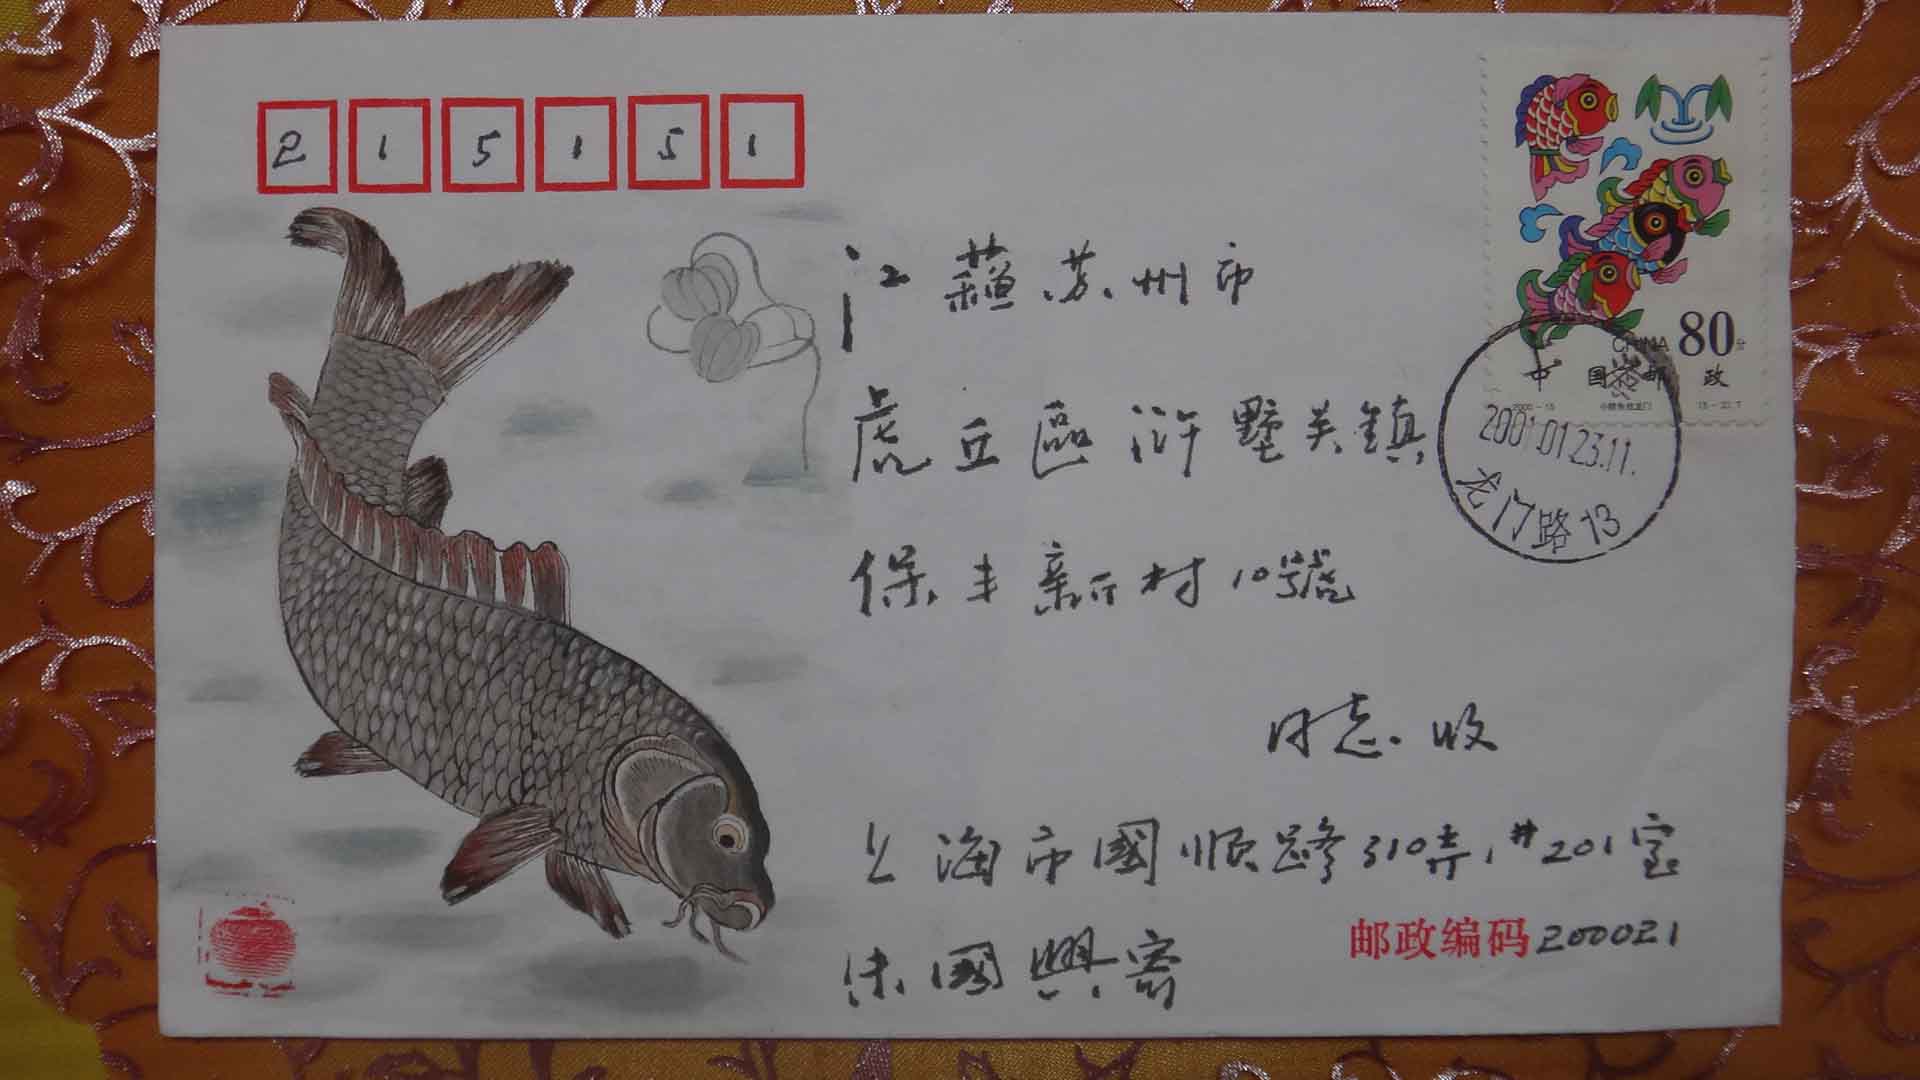 215151
江蘓苏州市
虎丘區浒墅关鎮
保丰新村10號
同志收
上海市國顺路310弄1#201室
邮政编码200021
朱國興寄
80分
CHINA
中国邮政
2000-15
小鲤鱼跳龙门
2001.01.23.11.
龙门路13